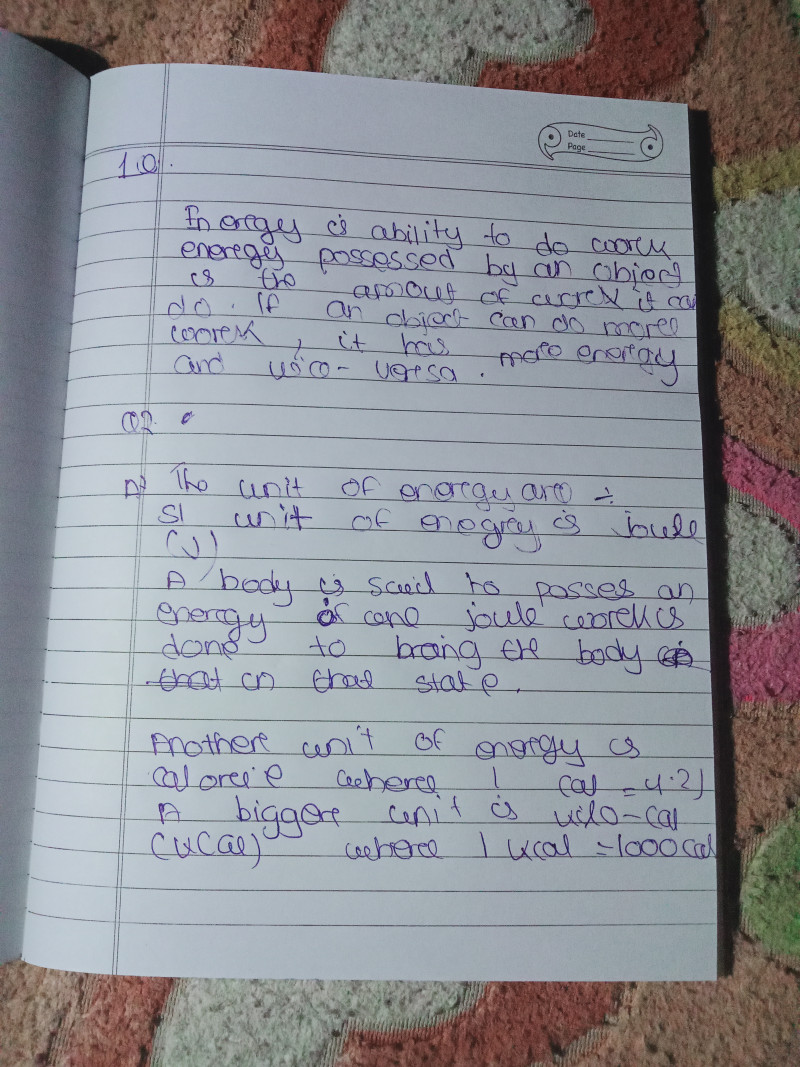 Date
Page
1Q.
Eneregy is ability to do worek
eneregy possessed by an object
is the amout of worek it can
do. If an object can do moree
worek, it has more energy
and vice-veresa.
Q2.
A) The unit of eneregy are ÷
SI unit of enegrey is joule
(J)
A body is said to posses an
energy of one joule worek is
done to braing the body in
that in that state.
Anothere unit of energy is
calorie wheree 1 cal = 4.2J
A biggere unit is kilo-cal
(kCal) wheree 1 kcal = 1000cal